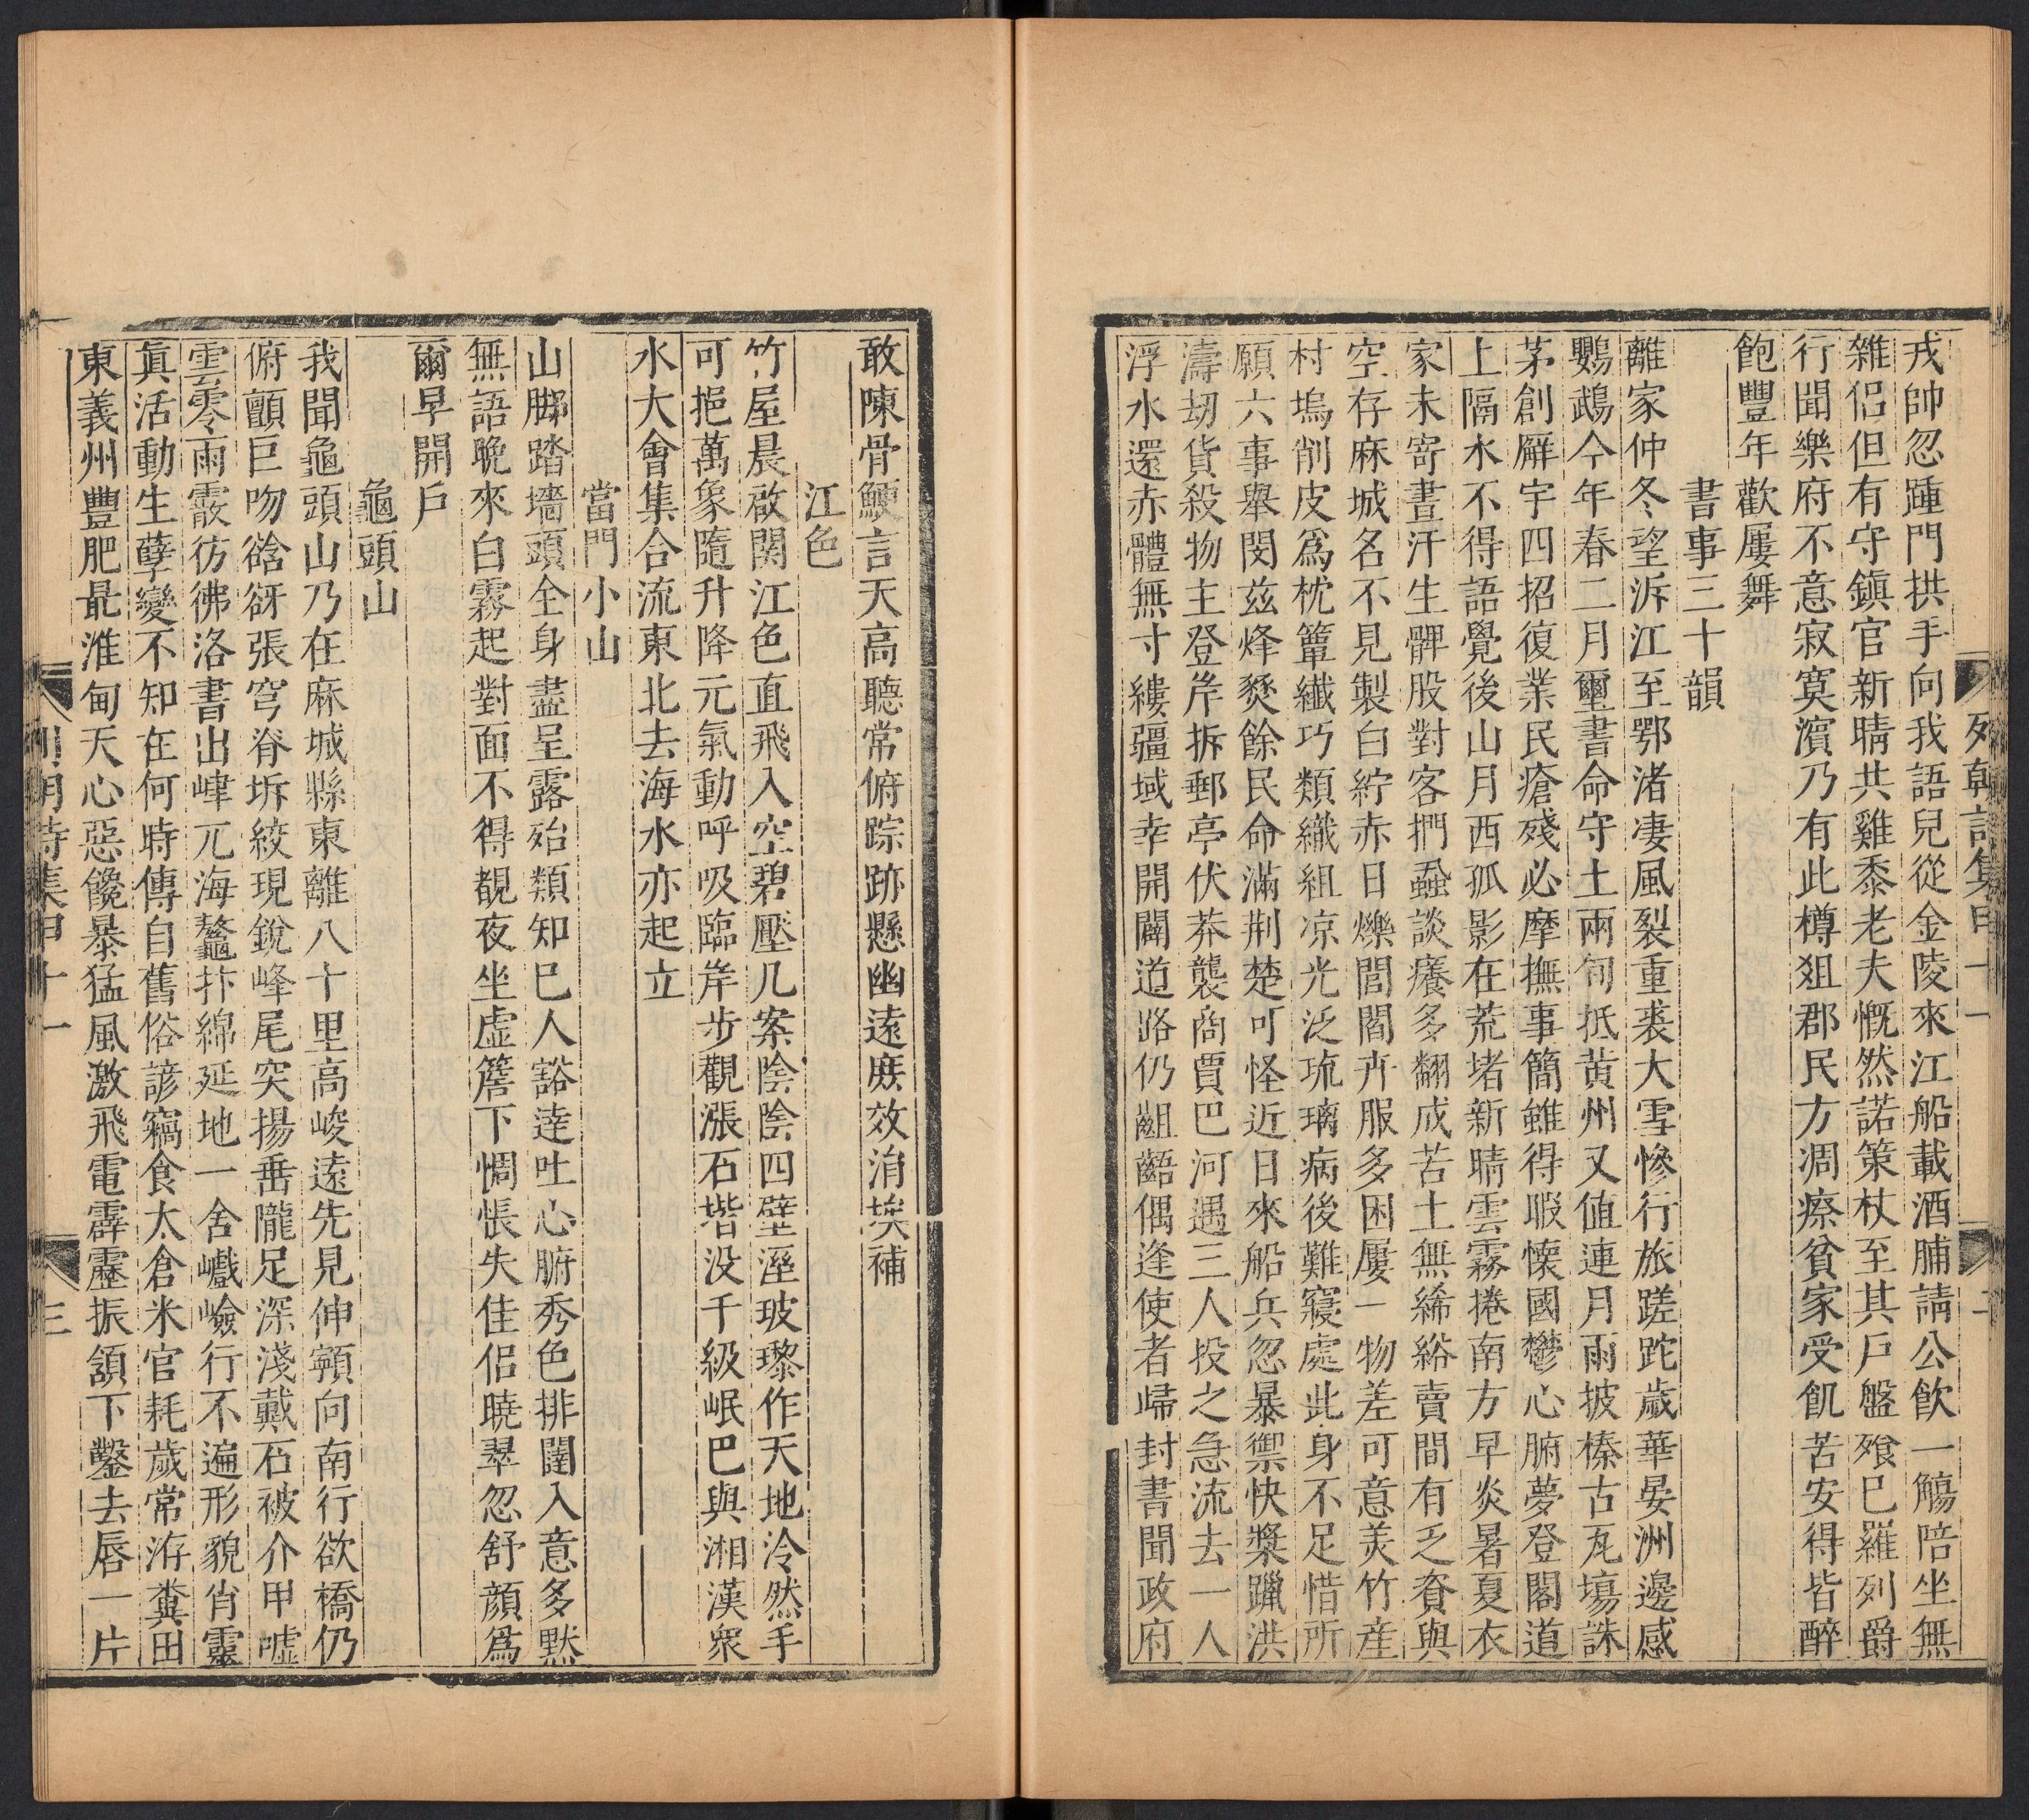 列朝詩集甲十一
二
戎帥忽踵門拱手向我語兒從金陵來江船載酒脯請公飲一觴陪坐無
雜侶但有守鎮官新晴共雞黍老夫慨然諾策杖至其戶盤飧巳羅列爵
行聞樂府不意寂寞濱乃有此樽俎郡民方凋瘵貧家受飢苦安得皆醉
飽豐年歡屢舞
書事三十韻
離家仲冬望泝江至鄂渚凄風裂重裘大雪慘行旅蹉跎歲華晏洲邊感
鸚鵡今年春二月璽書命守土兩旬抵黃州又値連月雨披榛古瓦塲誅
茅創廨宇四招復業民瘡殘必摩撫事簡雖得暇懷國鬱心腑夢登閣道
上隔水不得語覺後山月西孤影在荒堵新晴雲霧捲南方早炎暑夏衣
家未寄晝汗生髀股對客捫蝨談癢多翻成苦土無絺綌賣間有乏資與
空存麻城名不見製白紵赤日爍閭閻卉服多困屢一物差可意美竹産
村塢削皮爲枕簟纖巧類織組凉光泛琉璃病後難寢處此身不足惜所
願六事舉閔兹烽燹餘民命滿荆楚可怪近日來船兵忽暴禦快槳躐洪
濤刼貨殺物主登岸拆郵亭伏莽襲商賈巴河遇三人投之急流去一人
浮水還赤體無寸縷疆域幸開闢道路仍齟齬偶逢使者歸封書聞政府
敢陳骨鯁言天高聽常俯踪跡懸幽遠庶效涓埃補
江色
竹屋晨啟関江色直飛入空碧壓几案陰陰四壁溼玻瓈作天地泠然手
可挹萬象隨升降元氣動呼吸臨岸步觀漲石堦没千級岷巴與湘漢衆
水大會集合流東北去海水亦起立
當門小山
山脚踏墻頭全身盡呈露殆類知巳人豁達吐心腑秀色排闥入意多黙
無語晚來白霧起對面不得覩夜坐虛簷下惆悵失佳侶曉翠忽舒顔爲
爾早開戶
龜頭山
我聞龜頭山乃在麻城縣東離八十里高峻遠先見伸顙向南行欲橋仍
俯顫巨吻谽谺張穹脊坼綻現銳峰尾突揚垂隴足深淺戴石被介甲噓
雲零雨霰彷彿洛書出崒兀海鼇抃綿延地一舍巇嶮行不遍形貌肖靈
眞活動生孽變不知在何時傳自舊俗諺竊食太倉米官耗歲常洊糞田
東義州豐肥最淮甸天心惡饞暴猛風激飛電霹靂振頷下鑿去唇一片
列朝詩集甲十一
三